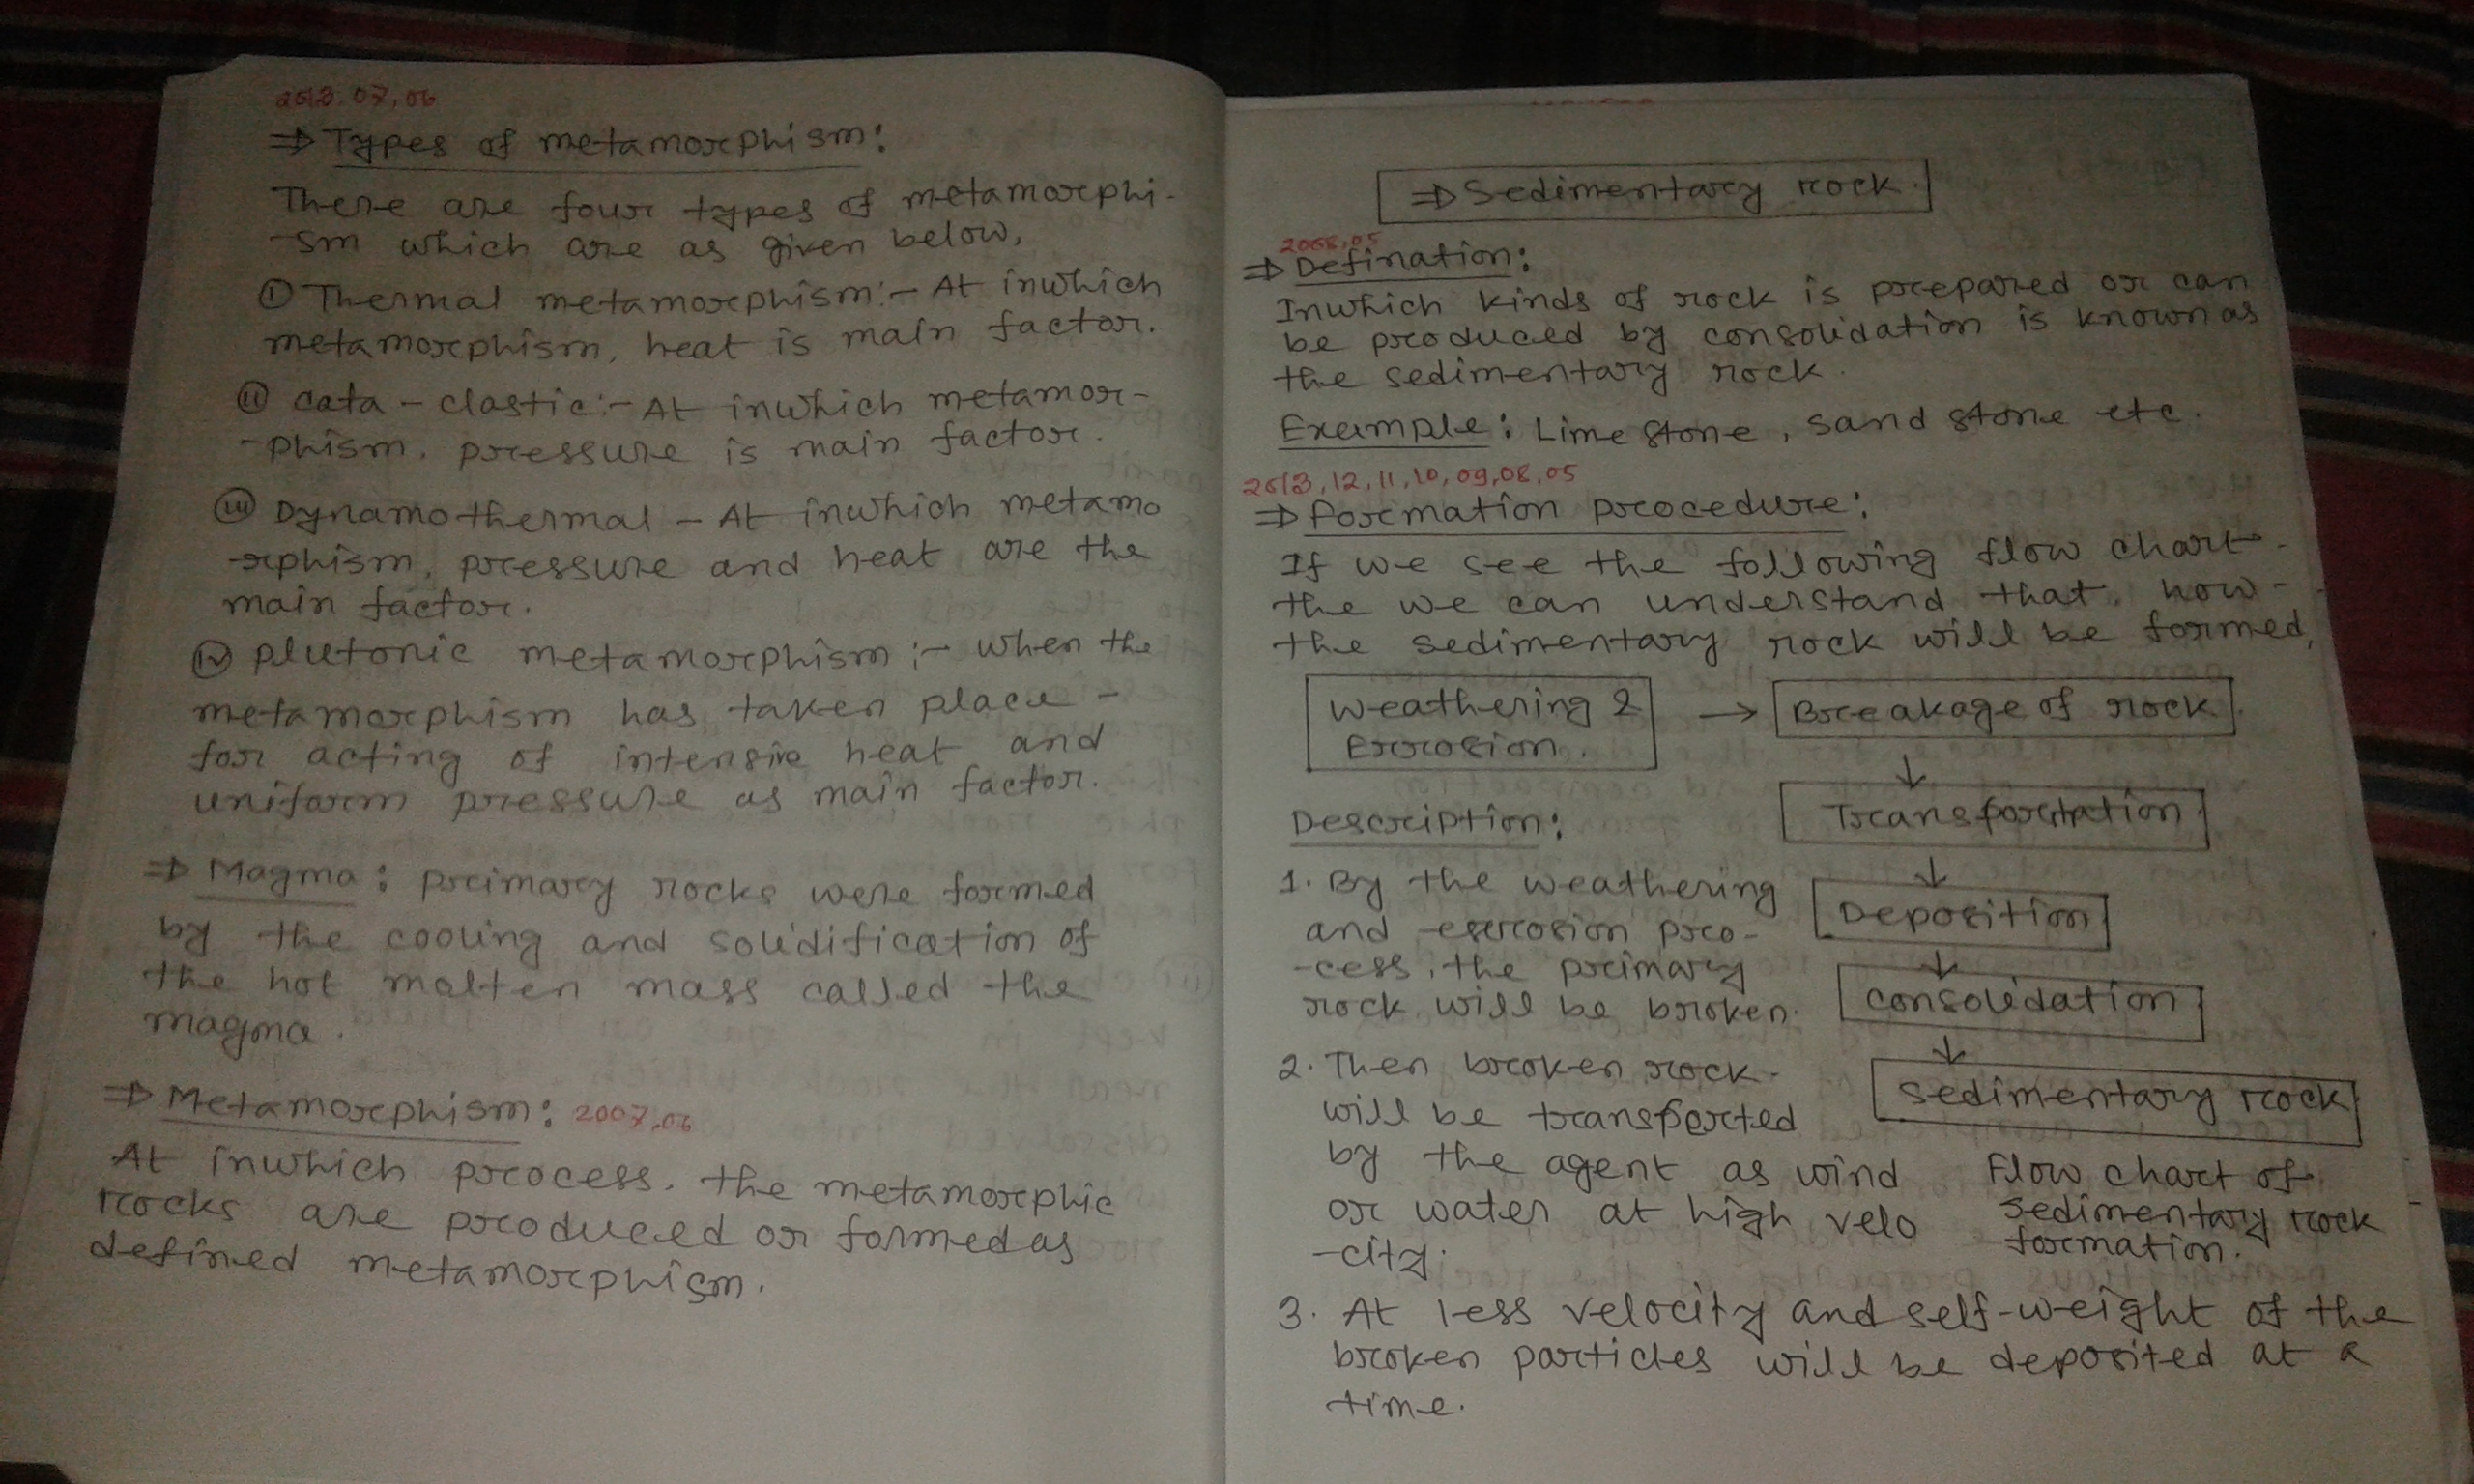 2012.07,06
⇒ Types of metamorphism:
There are four types of metamorphi-
-sm which are as given below,
(i) Thermal metamorphism:- At inwhich
metamorphism, heat is main factor.
(ii) cata-clastic:- At inwhich metamor-
-phism, pressure is main factor.
(iii) Dynamothermal - At inwhich metamo
-rphism, pressure and heat are the
main factor.
(iv) plutonic metamorphism:- when the
metamorphism has taken place -
for acting of intensive heat and
uniform pressure as main factor.
⇒ Magma: primary rocks were formed
by the cooling and solidification of
the hot molten mass called the
magma.
⇒ Metamorphism: 2007,06
At inwhich process, the metamorphic
rocks are produced or formed as
defined metamorphism.
⇒ Sedimentary rock.
2008,05
⇒ Defination:
Inwhich kinds of rock is prepared or can
be produced by consolidation is known as
the sedimentary rock.
Example: Lime stone, sand stone etc.
2013,12,11,10,09,08,05
⇒ formation procedure:
If we see the following flow chart-
the we can understand that, how-
the sedimentary rock will be formed,
Weathering & → Breakage of rock
Errosion.
↓
Transportation
↓
Deposition
↓
consolidation
↓
sedimentary rock
Flow chart of
sedimentary rock
formation.
Description:
1. By the weathering
and errosion pro-
-cess, the primary
rock will be broken.
2. Then broken rock-
will be transported
by the agent as wind
or water at high velo
-city.
3. At less velocity and self-weight of the
broken particles will be deposited at a
time.